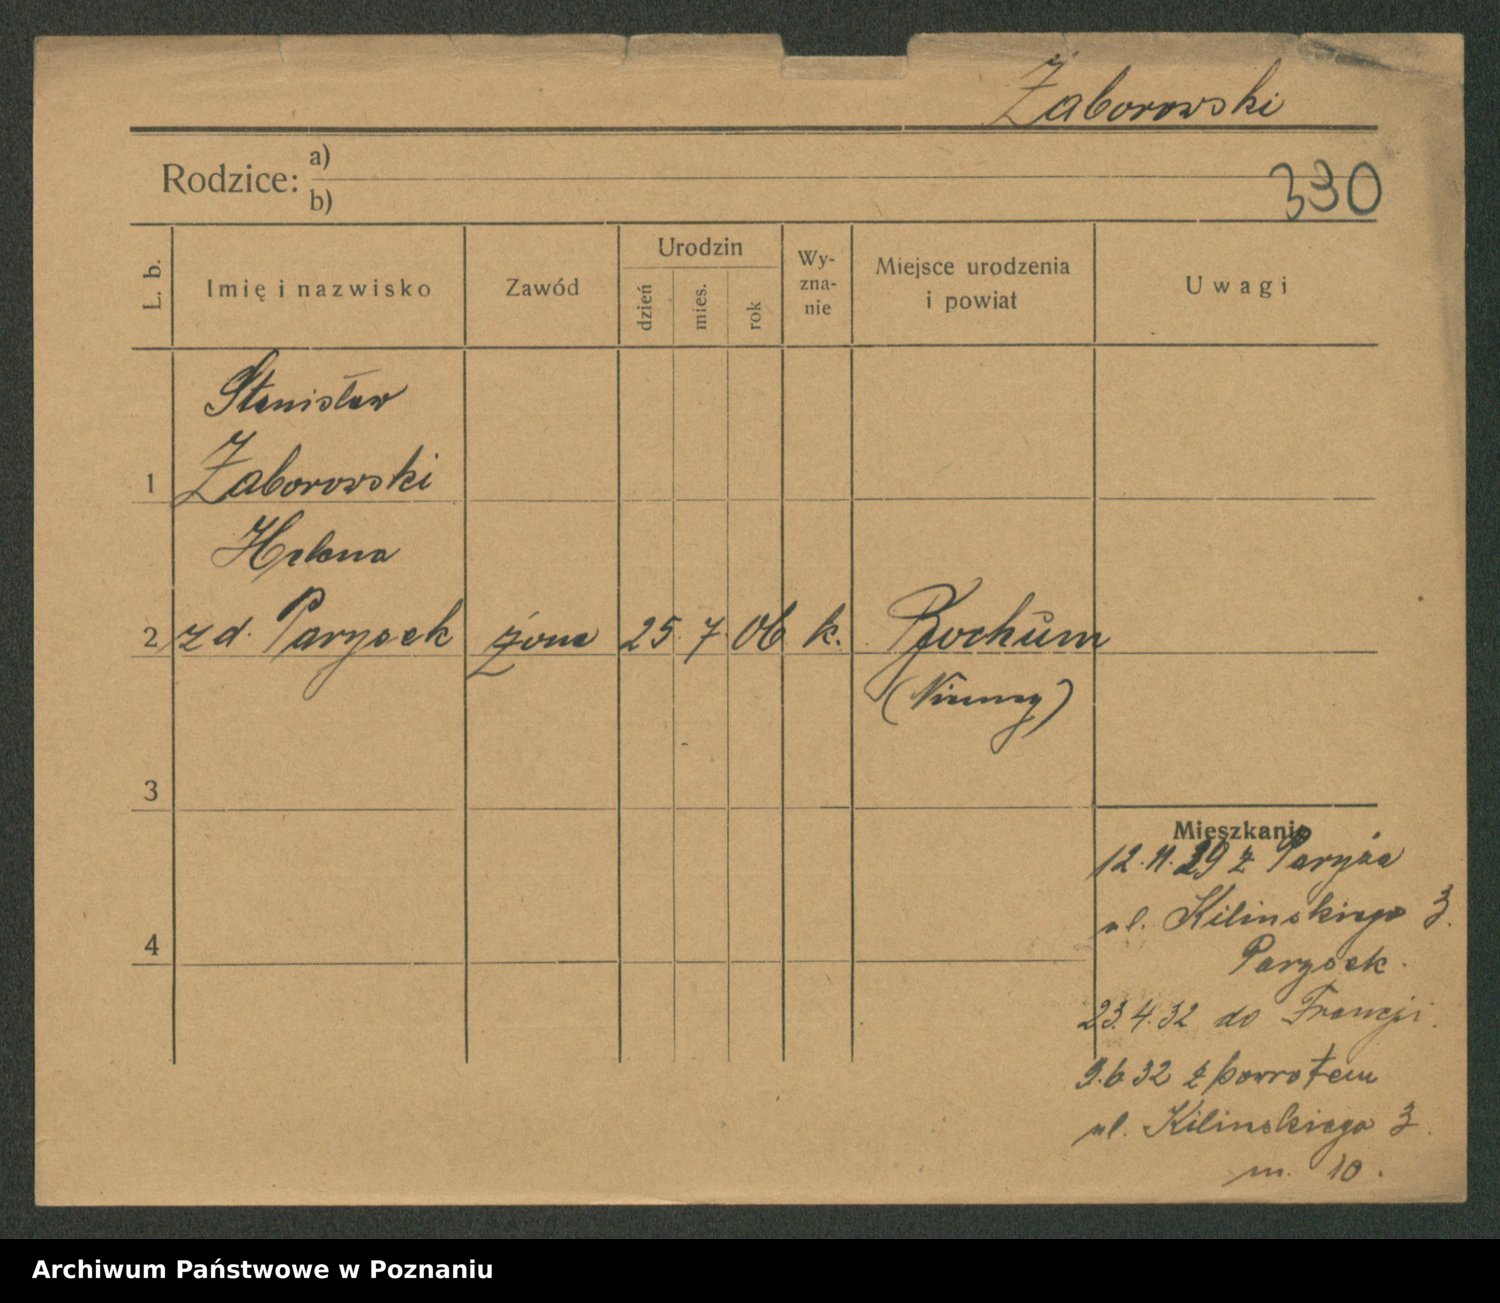 Żaborowski
Rodzice: a)
b)
330
L. b.
Imię i nazwisko
Zawód
Urodzin
dzień
mies.
rok
Wy-
zna-
nie
Miejsce urodzenia
i powiat
Uwagi
Stanisław
1 Żaborowski
Helena
2 z d. Parysek żona 25 7. 06 k. Bochum
(Niemcy)
3
Mieszkanie
12.11.29 z Paryża
ul. Kilinskiego 3.
4
Parysek.
23.4.32 do Francji.
9.6 32 z powrotem
ul. Kilinskiego 3.
m. 10.
Archiwum Państwowe w Poznaniu